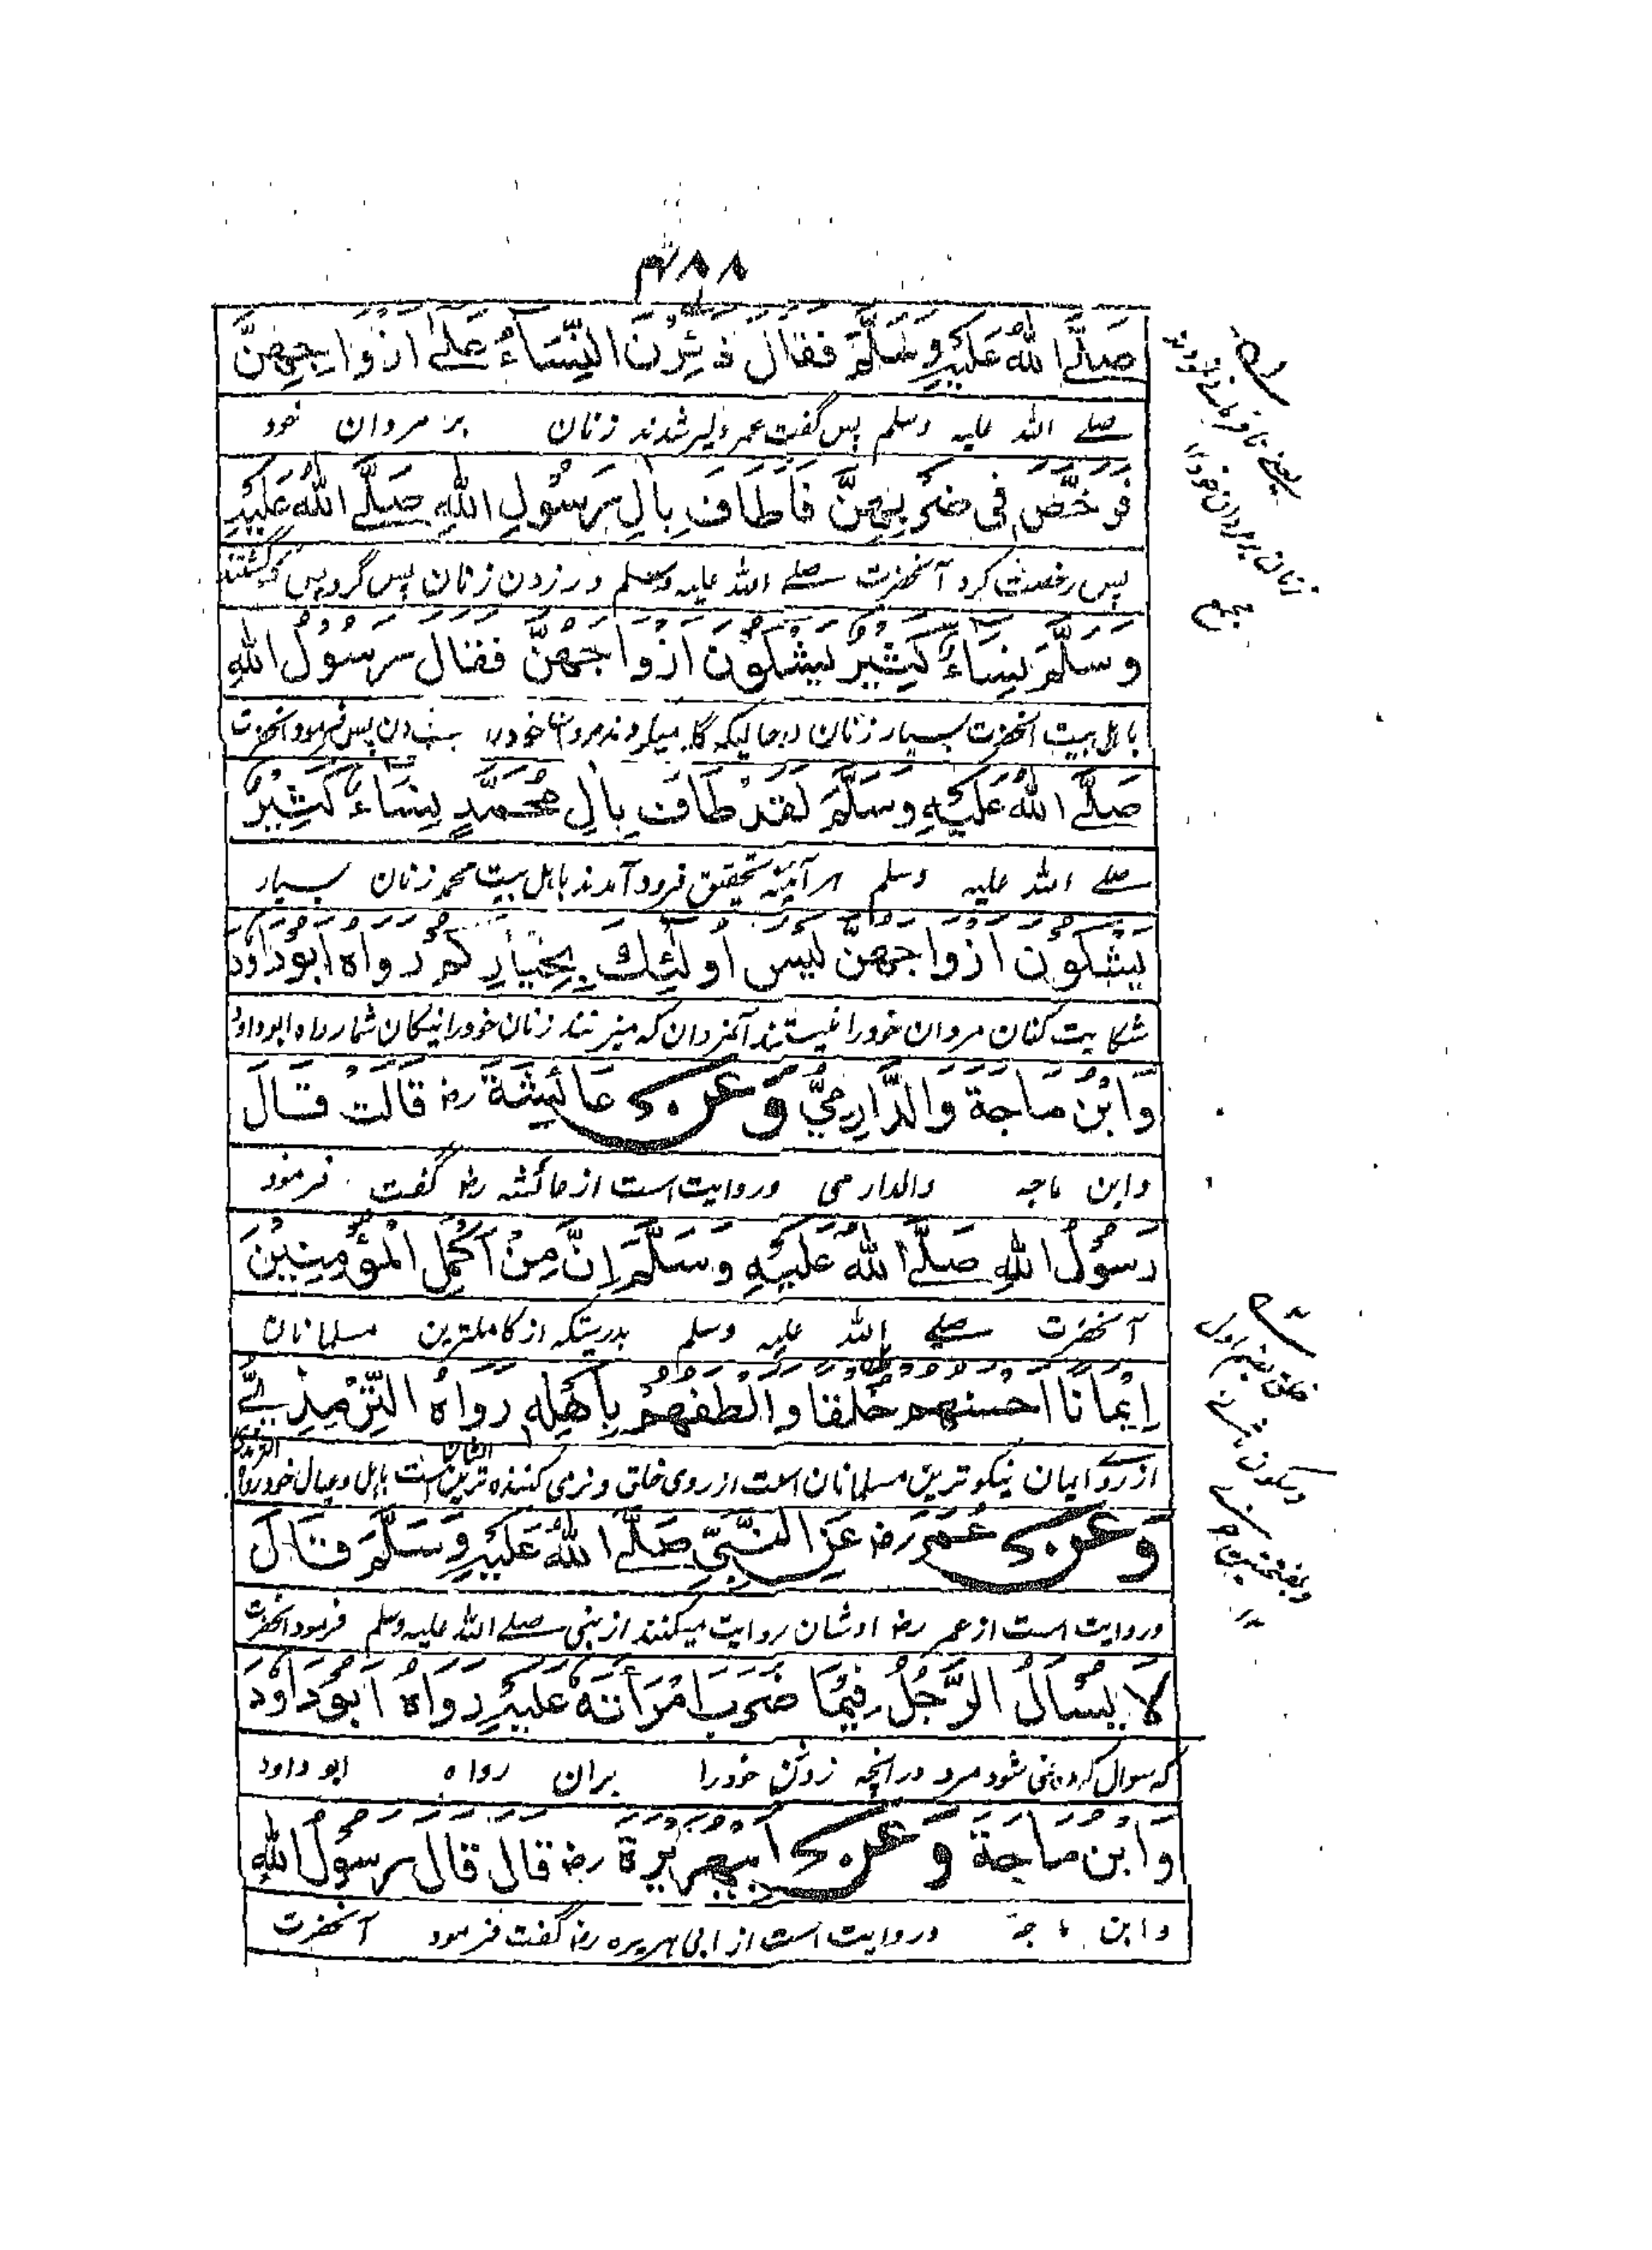 ۴۸۸
صَلَّے اللهُ عَلَيْهِ وَسَلَّمَ فَقَالَ ذَئِرْنَ النِّسَاءُ عَلٰى اَزْوَاجِهِنَّ
صلے اللہ علیہ وسلم پس گفت عمر دلیر شدند زنان بر مردان خود
فَرَخَّصَ فِى ضَرْبِهِنَّ فَاَطَافَ بِاٰلِ رَسُوْلِ اللهِ صَلَّے اللهُ عَلَيْهِ
پس رخصت کرد آنحضرت صلے اللہ علیہ وسلم در زدن زنان پس گرد پس گشتند
وَسَلَّمَ نِسَاءٌ كَثِيْرٌ يَشْكُوْنَ اَزْوَاجَهُنَّ فَقَالَ رَسُوْلُ اللهِ
با اہل بیت آنحضرت بسیار زنان در حالیکہ گلہ میکردند مردان خود را پس فرمود آنحضرت
صَلَّے اللهُ عَلَيْهِ وَسَلَّمَ لَقَدْ طَافَ بِاٰلِ مُحَمَّدٍ نِسَاءٌ كَثِيْرٌ
صلے اللہ علیہ وسلم ہر آئینہ تحقیق فرود آمدند با اہل بیت محمد زنان بسیار
يَشْكُوْنَ اَزْوَاجَهُنَّ لَيْسَ اُولٰئِكَ بِخِيَارِكُمْ رَوَاهُ اَبُوْدَاوٗدَ
شکایت کنان مردان خود را نیستند آنمردان کہ میزنند زنان خود را نیکان شما رواہ ابو داود
وَابْنُ مَاجَةَ وَالدَّارِمِيُّ وَعَنْ عَائِشَةَ رض قَالَتْ قَالَ
وابن ماجہ والدارمی وروایت است از عائشہ رض گفت فرمود
رَسُوْلُ اللهِ صَلَّے اللهُ عَلَيْهِ وَسَلَّمَ اِنَّ مِنْ اَكْمَلِ الْمُؤْمِنِيْنَ
آنحضرت صلے اللہ علیہ وسلم بدرستیکہ از کاملترین مسلمانان
اِيْمَانًا اَحْسَنُهُمْ خُلُقًا وَاَلْطَفُهُمْ بِاَهْلِهٖ رَوَاهُ التِّرْمِذِيُّ
از روے ایمان نیکو ترین مسلمانان است از روی خلق و نرمی کننده ترین ایشان است باہل وعیال خود رواہ الترمذی
وَعَنْ عُمَرَ رض عَنِ النَّبِيِّ صَلَّے اللهُ عَلَيْهِ وَسَلَّمَ قَالَ
وروایت است از عمر رض اوشان روایت میکنند از نبی صلے اللہ علیہ وسلم فرمود آنحضرت
لَا يُسْاَلُ الرَّجُلُ فِيْمَا ضَرَبَ امْرَأَتَهٗ عَلَيْهِ رَوَاهُ اَبُوْدَاوٗدَ
کہ سوال کرده نمی شود مرد در آنچہ زد زن خود را بران رواہ ابو داود
وَابْنُ مَاجَةَ وَعَنْ اَبِيْهُرَيْرَةَ رض قَالَ قَالَ رَسُوْلُ اللهِ
وابن ماجہ وروایت است از ابی ہریره رض گفت فرمود آنحضرت
زنان بر مردان خود